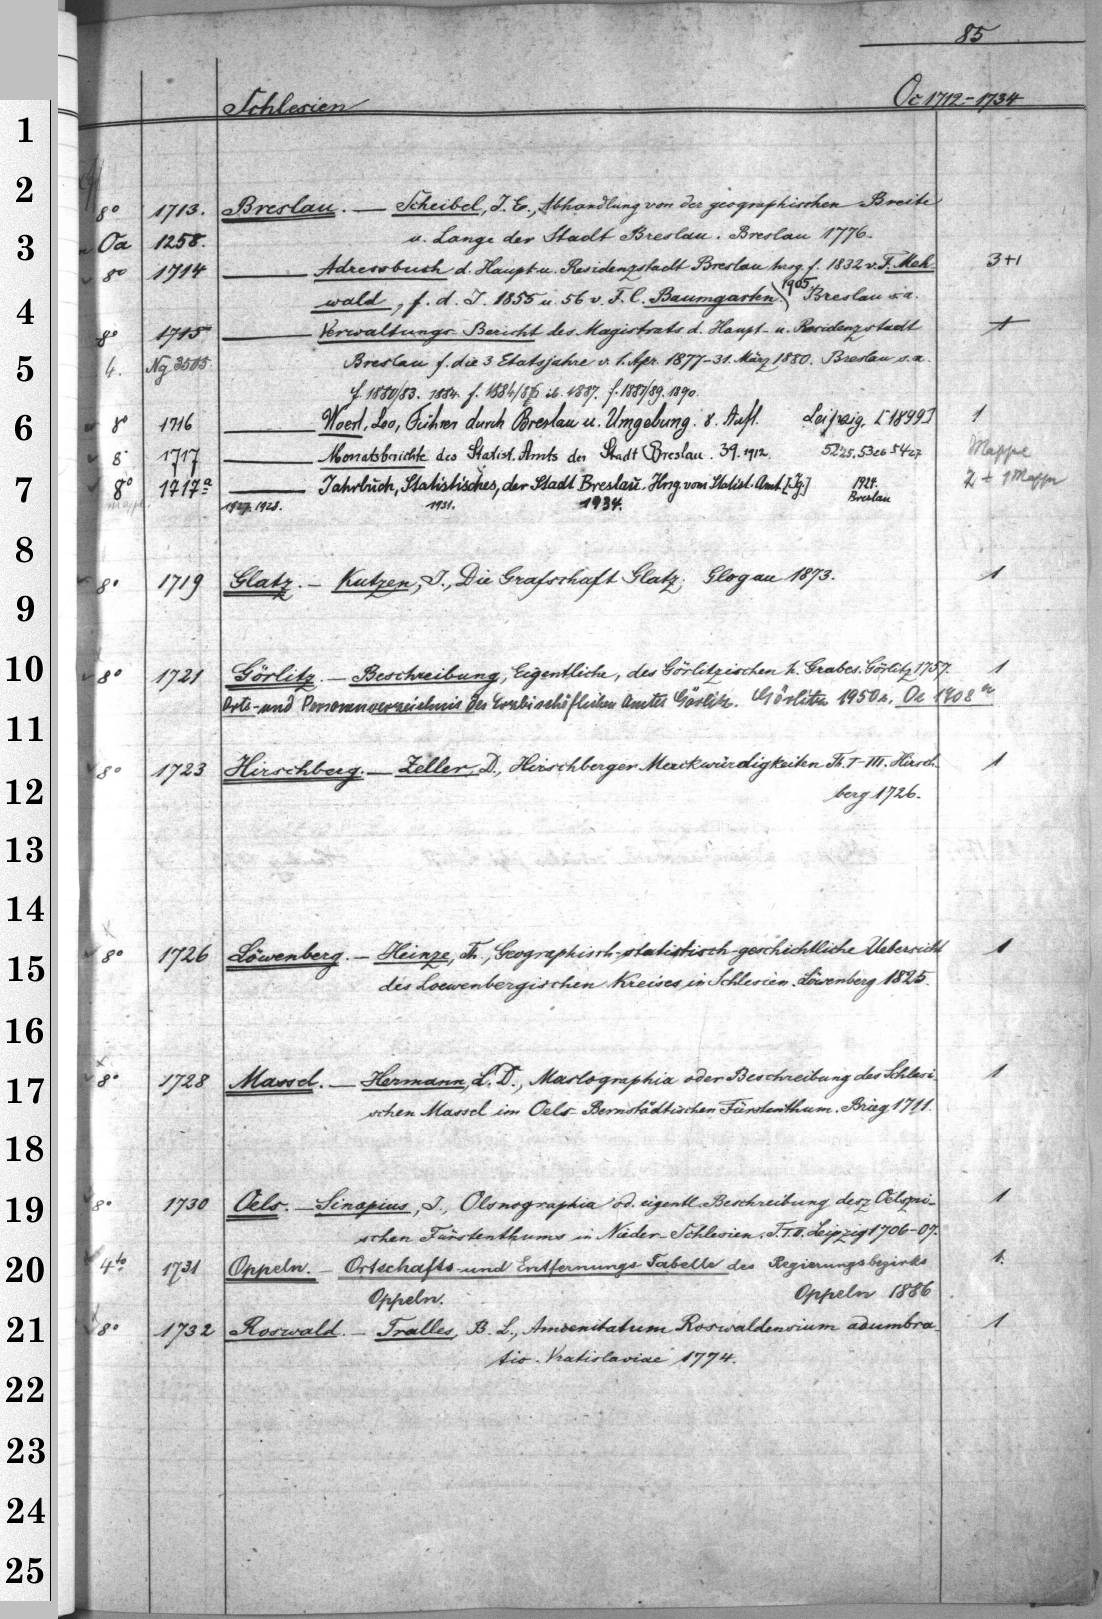 85
Schlesien Oc 1712-1734
8° 1713. Breslau. — Scheibel, J. E., Abhandlung von der geographischen Breite
Oa 1258. u. Länge der Stadt Breslau. Breslau 1776.
8° 1714 — Adressbuch d. Haupt- u. Residenzstadt Breslau hrsg. f. 1832 v. F. Meh- 3+1
wald, f. d. J. 1855 u. 56 v. F. C. Baumgarten. 1905 Breslau s. a.
8° 1715 — Verwaltungs-Bericht des Magistrats d. Haupt- u. Residenzstadt 1
4. Ng 3505. Breslau f. die 3 Etatsjahre v. 1. Apr. 1877-31. März 1880. Breslau s. a.
f. 1880/83. 1884. f. 1884/86 ib. 1887. f. 1887/89. 1890.
8° 1716 — Woerl, Leo, Führer durch Breslau u. Umgebung. 8. Aufl. Leipzig. [1899] 1
8° 1717 — Monatsberichte des Statist. Amts der Stadt Breslau. 39. 1912. 52 25. 53 26 54 27 Mappe
8° 1717a — Jahrbuch, Statistisches, der Stadt Breslau. Hrsg. vom Statist. Amt. [Jg.] 1924. Breslau 2 + 1 Mappe
Mappe 1927. 1928. 1931. 1934.
8° 1719 Glatz. — Kutzen, J., Die Grafschaft Glatz. Glogau 1873. 1
8° 1721 Görlitz. — Beschreibung, Eigentliche, des Görlitzischen h. Grabes. Görlitz 1757. 1
Orts- und Personenverzeichnis des Erzbischöflichen Amtes Görlitz. Görlitz 1950 s. Oc 1908 m
8° 1723 Hirschberg. — Zeller, D., Hirschberger Merckwürdigkeiten Th. I-III. Hirsch- 1
berg 1726.
8° 1726 Löwenberg. — Heinze, Th., Geographisch-statistisch-geschichtliche Uebersicht 1
des Loewenbergischen Kreises in Schlesien. Löwenberg 1825.
8° 1728 Massel. — Hermann, L. D., Maslographia oder Beschreibung des Schlesi- 1
schen Massel im Oels-Bernstädtischen Fürstenthum. Brieg 1711.
8° 1730 Oels. — Sinapius, J., Olsnographia od. eigentl. Beschreibung desz Oelszni- 1
schen Fürstenthums in Nieder-Schlesien. T. I. II. Leipzig 1706-07.
4to 1731 Oppeln. — Ortschafts- und Entfernungs-Tabelle des Regierungsbezirks 1.
Oppeln. Oppeln 1886
8° 1732 Roswald. — Tralles, B. L., Amoenitatum Roswaldensium adumbra- 1
tio. Vratislaviae 1774.
1
2
3
4
5
6
7
8
9
10
11
12
13
14
15
16
17
18
19
20
21
22
23
24
25